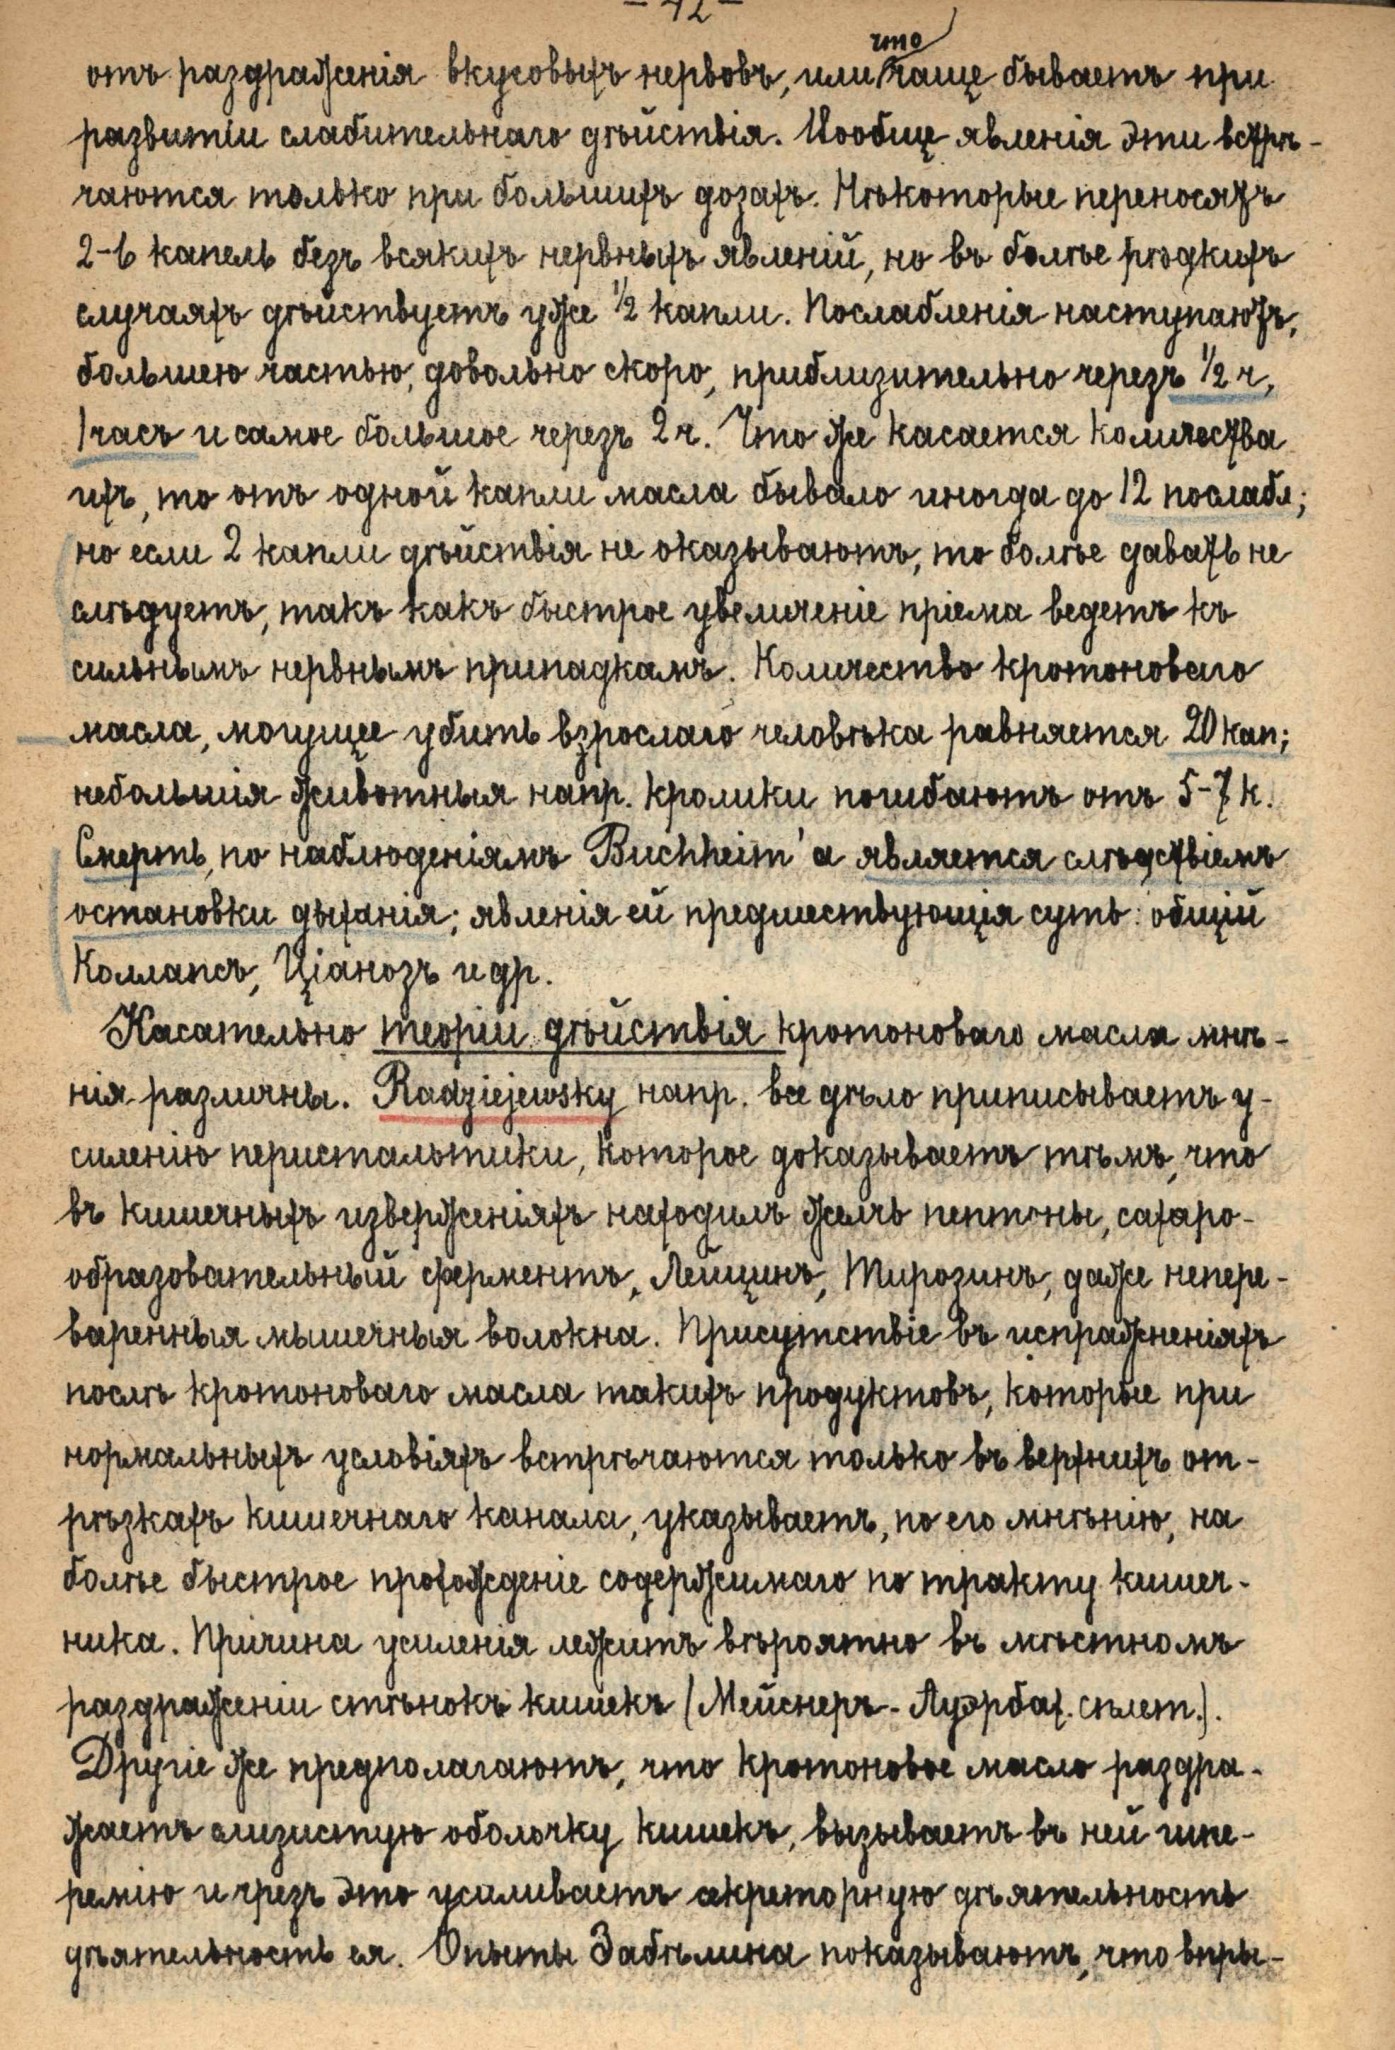 - 42 -
что
отъ раздраженія вкусовыхъ нервовъ, или чаще бываетъ при
развитіи слабительнаго дѣйствія. Вообще явленія эти встрѣ-
чаются только при большихъ дозахъ. Нѣкоторые переносятъ
2-6 капель безъ всякихъ нервныхъ явленій, но въ болѣе рѣдкихъ
случаяхъ дѣйствуетъ уже ½ капли. Послабленія наступаютъ,
большею частью, довольно скоро, приблизительно черезъ ½ ч,
1 часъ и самое большое черезъ 2 ч. Что же касается количества
ихъ, то отъ одной капли масла бывало иногда до 12 послабл;
но если 2 капли дѣйствія не оказываютъ, то болѣе давать не
слѣдуетъ, такъ какъ быстрое увеличеніе пріема ведетъ къ
сильнымъ нервнымъ припадкамъ. Количество кротоноваго
масла, могущее убить взрослаго человѣка равняется 20 кап;
небольшія животныя напр. кролики погибаютъ отъ 5-7 к.
Смерть, по наблюденіямъ Buchheim'а является слѣдствіемъ
остановки дыханія; явленія ей предшествующія суть: общій
коллапсъ, ціанозъ и др.
Касательно теоріи дѣйствія кротоноваго масла мнѣ-
нія различны. Radziejewsky напр. все дѣло приписываетъ у-
силенію перистальтики, которое доказываетъ тѣмъ, что
въ кишечныхъ изверженіяхъ находилъ желчь пептоны, сахаро-
образовательный ферментъ, Лейцинъ, Тирозинъ, даже непере-
варенныя мышечныя волокна. Присутствіе въ испражненіяхъ
послѣ кротоноваго масла такихъ продуктовъ, которые при
нормальныхъ условіяхъ встрѣчаются только въ верхнихъ от-
рѣзкахъ кишечнаго канала, указываетъ, по его мнѣнію, на
болѣе быстрое прохожденіе содержимаго по тракту кишеч-
ника. Причина усиленія лежитъ вѣроятно въ мѣстномъ
раздраженіи стѣнокъ кишекъ (Мейснеръ-Ауэрбах. сплет.).
Другіе же предполагаютъ, что кротоновое масло раздра-
жаетъ слизистую оболочку кишекъ, вызываетъ въ ней гипе-
ремію и чрезъ это усиливаетъ секреторную дѣятельность
дѣятельность ея. Опыты Забѣлина показываютъ, что впры-